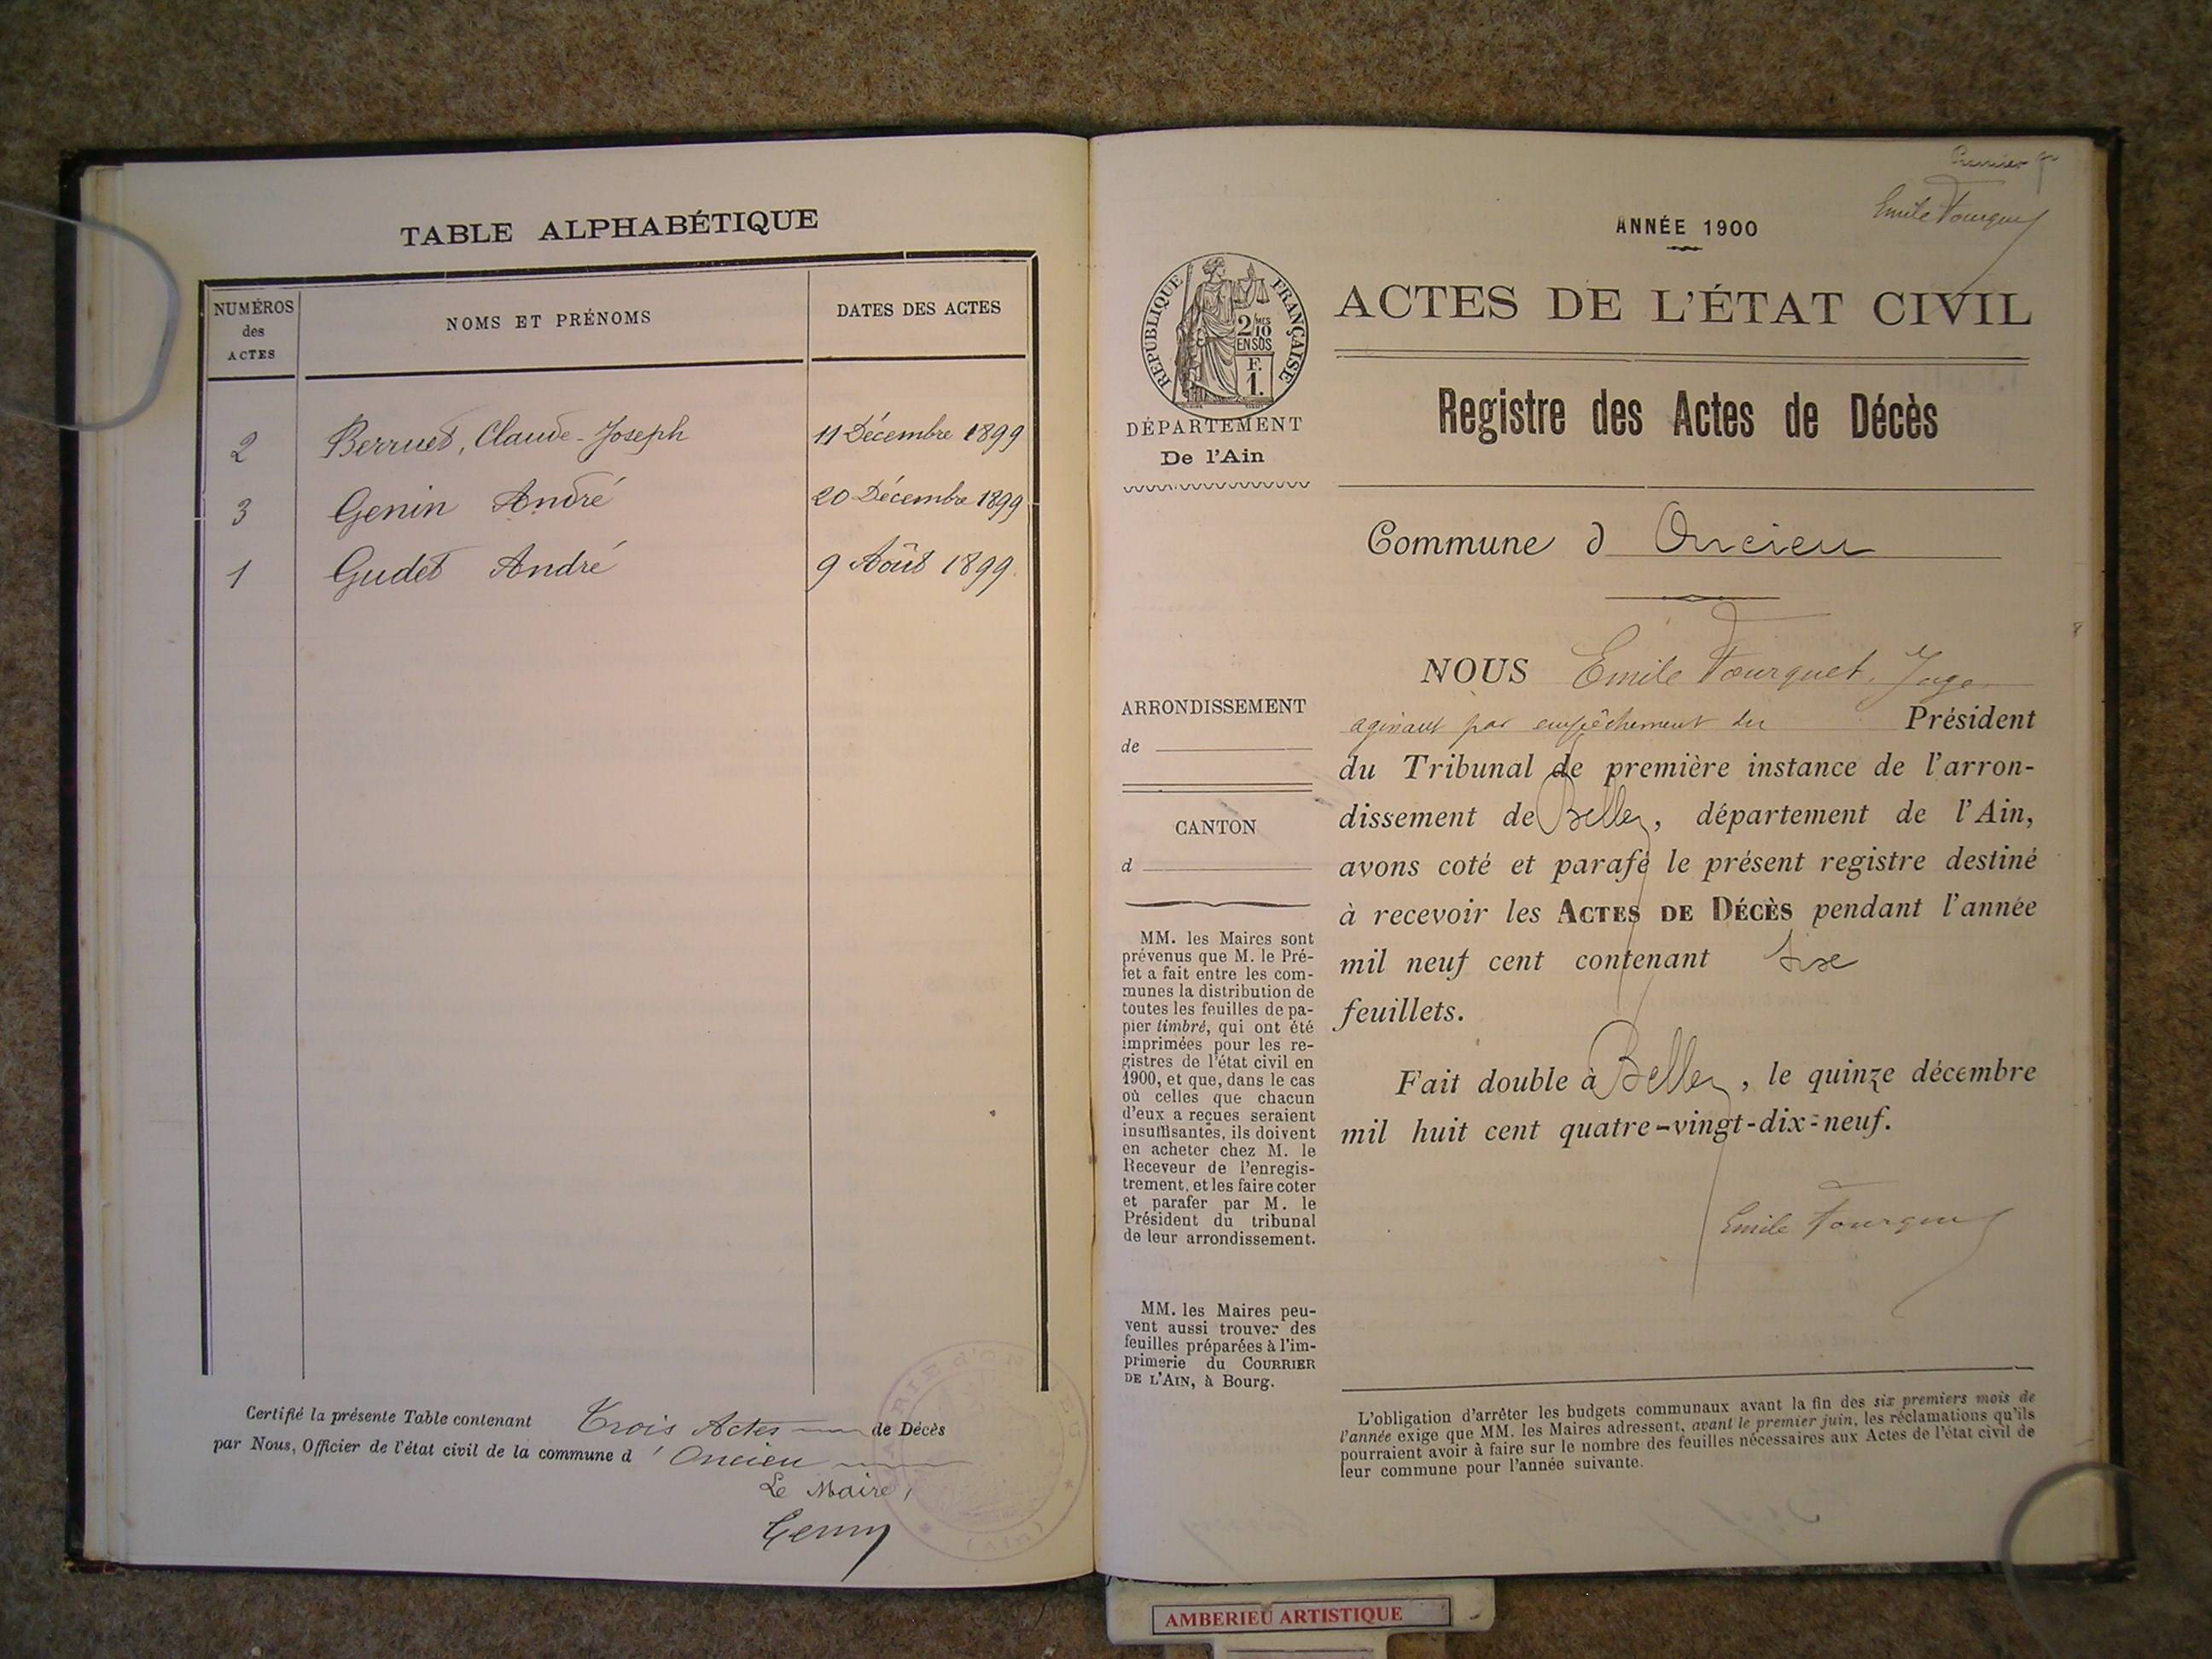 TABLE ALPHABÉTIQUE
NUMÉROS
des
ACTES
NOMS ET PRÉNOMS
DATES DES ACTES
2 Berruet, Claude-Joseph 11 Décembre 1899
3 Genin André 20 Décembre 1899
1 Gudet André 9 Août 1899.
Certifié la présente Table contenant Trois Actes de Décès
par Nous, Officier de l'état civil de la commune d' Oncieu
Le Maire,
Genin
Premier
Emile Fourquet
ANNÉE 1900
RÉPUBLIQUE FRANÇAISE
2/10MES
EN SUS
F.
1.
ACTES DE L'ÉTAT CIVIL
DÉPARTEMENT
De l'Ain
Registre des Actes de Décès
Commune d Oncieu
ARRONDISSEMENT
de
CANTON
d
MM. les Maires sont
prévenus que M. le Pré-
fet a fait entre les com-
munes la distribution de
toutes les feuilles de pa-
pier timbré, qui ont été
imprimées pour les re-
gistres de l'état civil en
1900, et que, dans le cas
où celles que chacun
d'eux a reçues seraient
insuffisantes, ils doivent
en acheter chez M. le
Receveur de l'enregis-
trement, et les faire coter
et parafer par M. le
Président du tribunal
de leur arrondissement.
MM. les Maires peu-
vent aussi trouver des
feuilles préparées à l'im-
primerie du COURRIER
DE L'AIN, à Bourg.
NOUS Emile Fourquet, Juge
agissant par empêchement du Président
du Tribunal de première instance de l'arron-
dissement de Belley, département de l'Ain,
avons coté et parafé le présent registre destiné
à recevoir les ACTES DE DÉCÈS pendant l'année
mil neuf cent contenant six
feuillets.
Fait double à Belley, le quinze décembre
mil huit cent quatre-vingt-dix-neuf.
Emile Fourquet
L'obligation d'arrêter les budgets communaux avant la fin des six premiers mois de
l'année exige que MM. les Maires adressent, avant le premier juin, les réclamations qu'ils
pourraient avoir à faire sur le nombre des feuilles nécessaires aux Actes de l'état civil de
leur commune pour l'année suivante.
AMBERIEU ARTISTIQUE